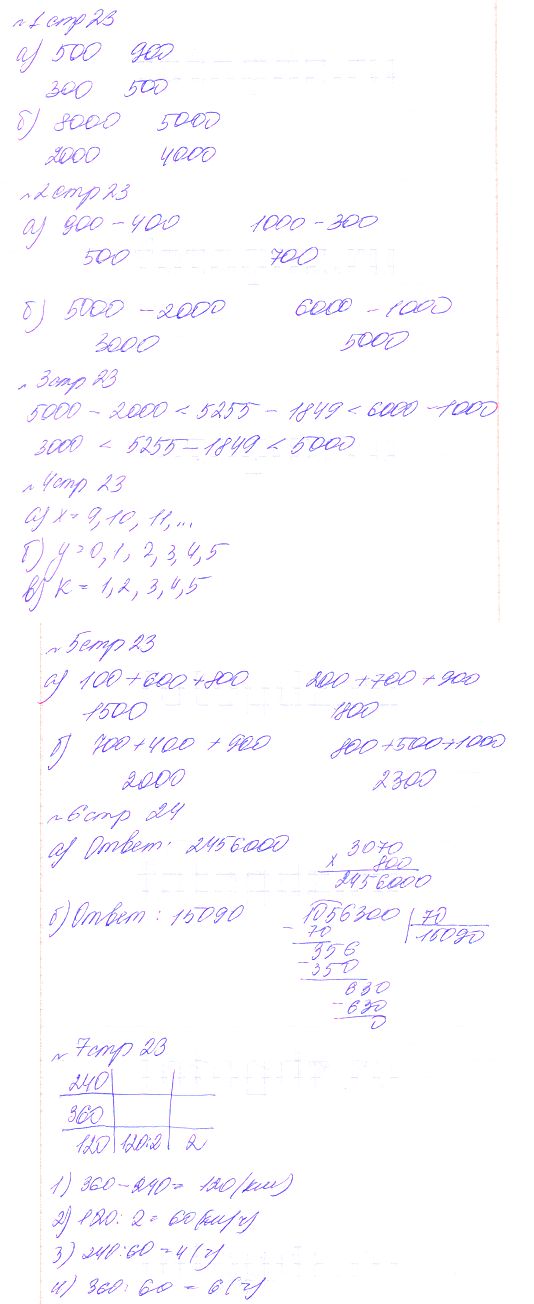 №1 стр 23
а) 500 900
300 500
б) 8000 5000
2000 4000
№2 стр 23
а) 900 - 400 1000 - 300
500 700
б) 5000 - 2000 6000 - 1000
3000 5000
№3 стр 23
5000 - 2000 < 5255 - 1849 < 6000 - 1000
3000 < 5255 - 1849 < 5000
№4 стр 23
а) x = 9, 10, 11, ...
б) y = 0, 1, 2, 3, 4, 5
в) к = 1, 2, 3, 4, 5
№5 стр 23
а) 100 + 600 + 800 200 + 700 + 900
1500 1800
б) 700 + 400 + 900 800 + 500 + 1000
2000 2300
№6 стр 24
а) Ответ: 2456000 3070
x 800
2456000
б) Ответ: 15090 1056300 70
- 70 15090
356
- 350
630
- 630
0
№7 стр 23
240
360
120 120:2 2
1) 360 - 240 = 120 (км)
2) 120 : 2 = 60 (км/ч)
3) 240 : 60 = 4 (ч)
4) 360 : 60 = 6 (ч)